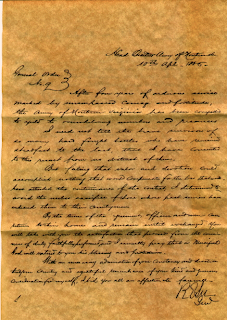 Head Quarters Army of Northern
10th Apl. 1865.
General Orders
No. 9
After four years of arduous service
marked by unsurpassed courage and fortitude,
the Army of Northern Virginia has been compelled
to yield to overwhelming numbers and resources
I need not tell the brave survivors of
so many hard fought battles who have remained
steadfast to the last that I have consented
to the result from no distrust of them.
But feeling that valor and devotion could
accomplish nothing that would compensate for the loss that
have attended the continuance of the contest, I determined to
avoid the useless sacrifice of those whose past services have
endeared them to their countrymen.
By the terms of the agreement officers and men can
return to their homes and remain until exchanged. You
will take with you the satisfaction that proceeds from the
of duty faithfully performed, and I earnestly pray that a Merciful
God will extend to you his blessing and protection.
With an increasing admiration of your constancy and devotion to
your Country and grateful remembrance of your kind and generous
consideration for myself, I bid you all an affectionate farewell
R E Lee
Genl